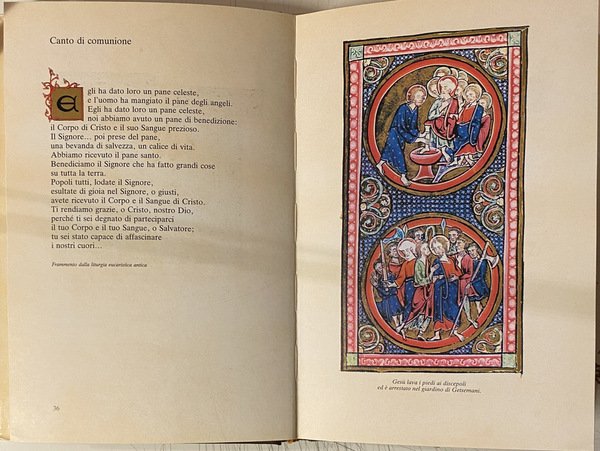 Canto di comunione
Egli ha dato loro un pane celeste,
e l'uomo ha mangiato il pane degli angeli.
Egli ha dato loro un pane celeste,
noi abbiamo avuto un pane di benedizione:
il Corpo di Cristo e il suo Sangue prezioso.
Il Signore... poi prese del pane,
una bevanda di salvezza, un calice di vita.
Abbiamo ricevuto il pane santo.
Benediciamo il Signore che ha fatto grandi cose
su tutta la terra.
Popoli tutti, lodate il Signore,
esultate di gioia nel Signore, o giusti,
avete ricevuto il Corpo e il Sangue di Cristo.
Ti rendiamo grazie, o Cristo, nostro Dio,
perché ti sei degnato di parteciparci
il tuo Corpo e il tuo Sangue, o Salvatore;
tu sei stato capace di affascinare
i nostri cuori...
Frammento dalla liturgia eucaristica antica
36
Gesù lava i piedi ai discepoli
ed è arrestato nel giardino di Getsemani.